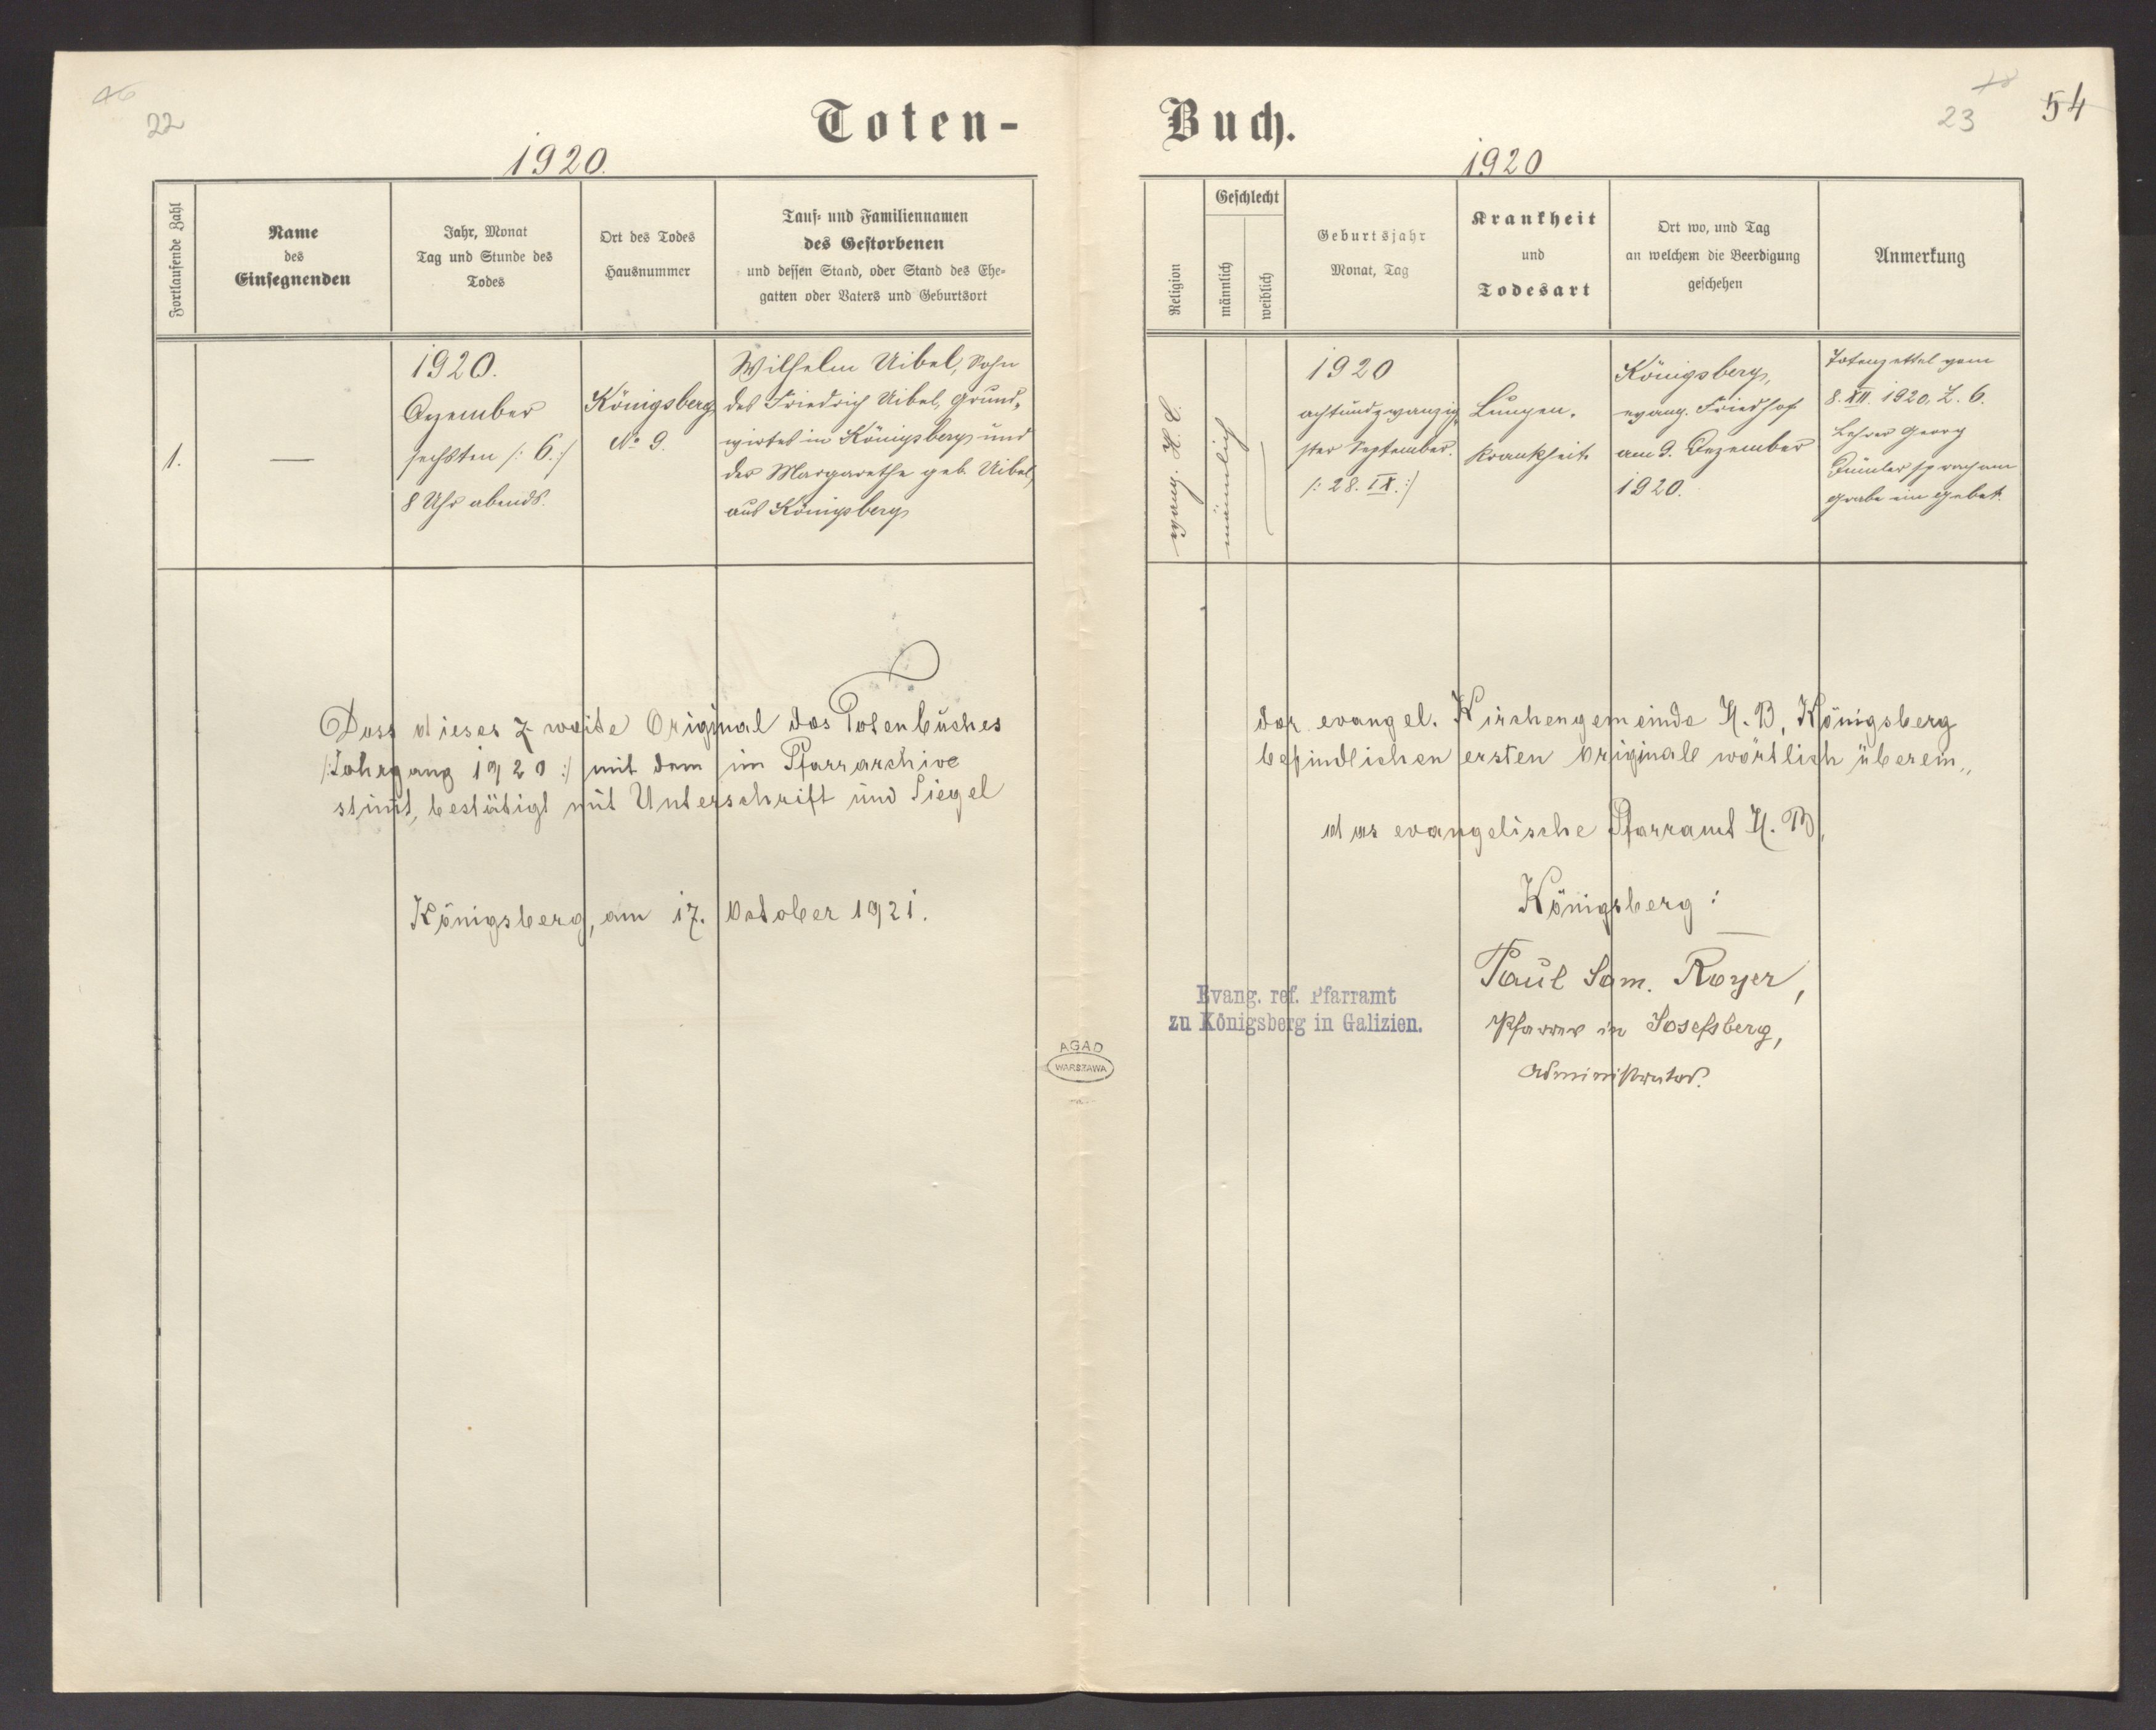 22
Toten-
1920.
Fortlaufende Zahl
Name
des
Einsegnenden
Jahr, Monat
Tag und Stunde des
Todes
Ort des Todes
Hausnummer
Tauf- und Familiennamen
des Gestorbenen
und dessen Stand, oder Stand des Ehe-
gatten oder Vaters und Geburtsort
1.
—
1920.
Dezember
sechsten /: 6. :/
8 Uhr abends.
Königsberg
No 9.
Wilhelm Uibel, Sohn
des Friedrich Uibel, Grund-
wirtes in Königsberg und
der Margarethe geb. Uibel,
aus Königsberg
Dass dieses zweite Original des Totenbuches
/: Jahrgang 1920 :/ mit dem im Pfarrarchive
stimt, bestätigt mit Unterschrift und Siegel
Königsberg, am 17. Oktober 1921.
AGAD
WARSZAWA
23
54
Buch.
1920
Religion
Geschlecht
männlich
weiblich
Geburtsjahr
Monat, Tag
Krankheit
und
Todesart
Ort wo, und Tag
an welchem die Beerdigung
geschehen
Anmerkung
evang. H. C.
männlich
1920
achtundzwanzig-
ster September.
/: 28. IX. :/
Lungen-
krankheit.
Königsberg,
evang. Friedhof
am 9. Dezember
1920.
Totenzettel vom
8. XII. 1920, Z. 6.
Lehrer Georg
sprach am
Grabe ein Gebet.
der evangel. Kirchengemeinde H. B. Königsberg
befindlichen ersten Originale wörtlich überein„
das evangelische Pfarramt H. B.
Königsberg :
Paul Sam. Royer,
Pfarrer in Josefsberg,
Administrator.
Evang. ref. Pfarramt
zu Königsberg in Galizien.